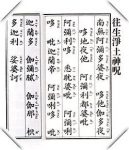 往生淨土神咒
南無阿彌多婆夜 哆他伽多夜
哆地夜他 阿彌利都婆毗
阿彌利哆 悉耽婆毗 阿彌唎
哆 毗迦蘭帝 阿彌唎哆 毗
迦蘭多 伽彌膩 伽伽那 枳
多迦利 娑婆訶